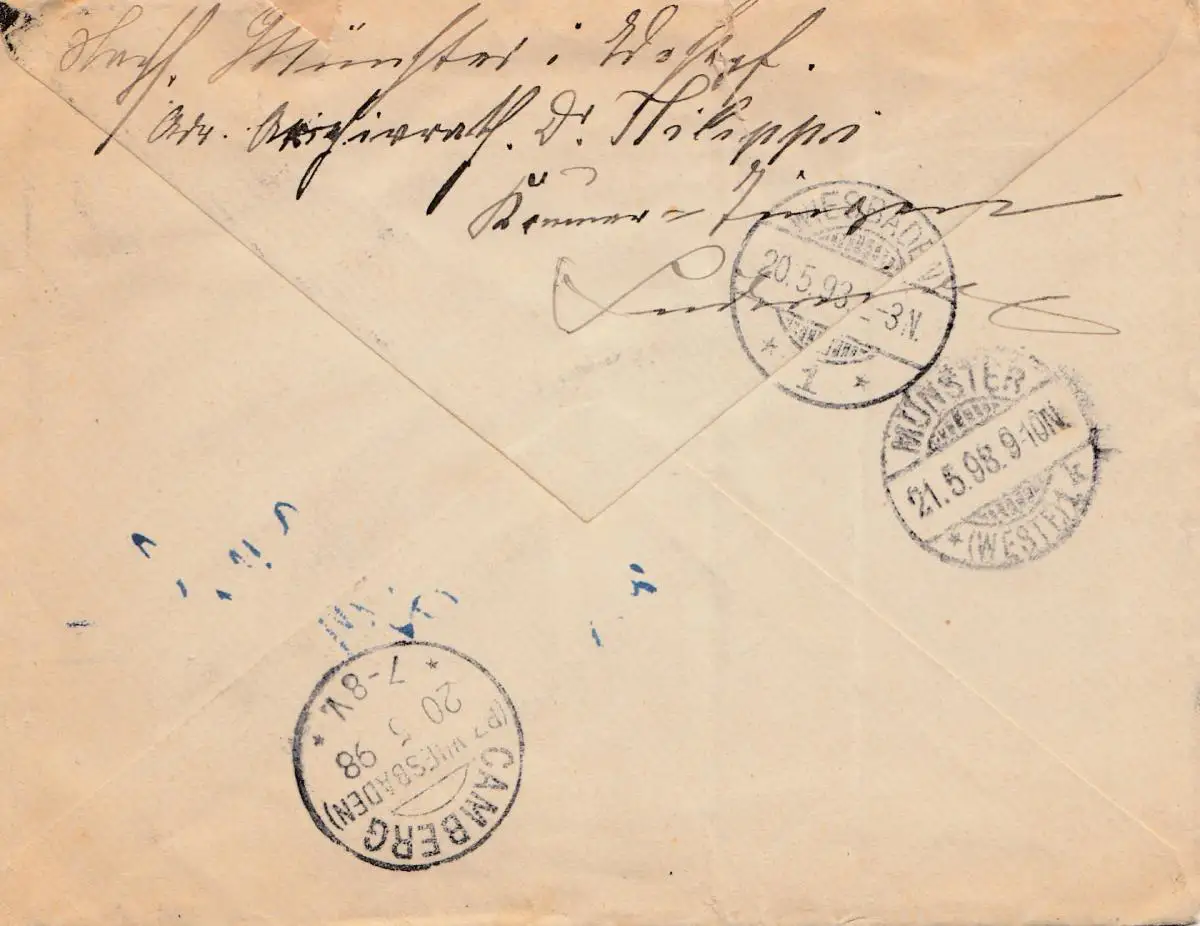 Nach Münster i Westf.
Adr. Archivrath. Dr. Philippi
WIESBADEN
20.5.98 2-3N.
* 1 *
MÜNSTER
21.5.98. 9-10N.
* (WESTF.) *
* 7-8 V. *
20 5 98
(BZ. WIESBADEN)
CAMBERG